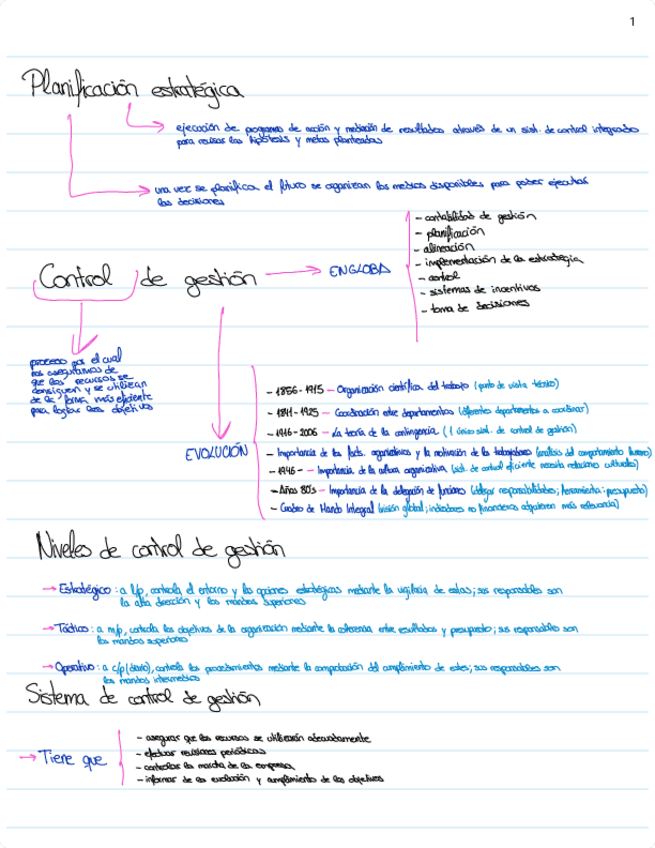 1
Planificación estratégica
ejecución de programas de acción y medición de resultados através de un sist. de control integrado
para revisar las hipótesis y metas planteadas
una vez se planifica el futuro se organizan los medios disponibles para poder ejecutar
las decisiones
- contabilidad de gestión
- planificación
- alineación
- implementación de la estrategia
- control
- sistemas de incentivos
- toma de decisiones
Control de gestión
ENGLOBA
proceso por el cual
nos aseguramos de
que los recursos se
consiguen y se utilizan
de la forma más eficiente
para lograr los objetivos
EVOLUCIÓN
- 1856-1915 - Organización científica del trabajo (punto de vista técnico)
- 1841-1925 - Coordinación entre departamentos (diferentes departamentos a coordinar)
- 1916-2006 - La teoría de la contingencia (1 único sist. de control de gestión)
- Importancia de los facts. organizativos y la motivación de los trabajadores (análisis del comportamiento humano)
- 1946- - Importancia de la cultura organizativa (sist. de control eficiente necesita relaciones culturales)
- Años 80's - Importancia de la delegación de funciones (delegar responsabilidades; herramienta: presupuesto)
- Cuadro de Mando Integral (visión global; indicadores no financieros adquieren más relevancia)
Niveles de control de gestión
Estratégico: a l/p, controla el entorno y las opciones estratégicas mediante la vigilancia de estas; sus responsables son
la alta dirección y los mandos superiores
Táctico: a m/p, controla los objetivos de la organización mediante la coherencia entre resultados y presupuesto; sus responsables son
los mandos superiores
Operativo: a c/p (diario), controla los procedimientos mediante la comprobación del cumplimiento de estos; sus responsables son
los mandos intermedios
Sistema de control de gestión
Tiene que
- asegurar que los recursos se utilizarán adecuadamente
- efectuar revisiones periódicas
- controlar la marcha de la empresa
- informar de la evolución y cumplimiento de los objetivos